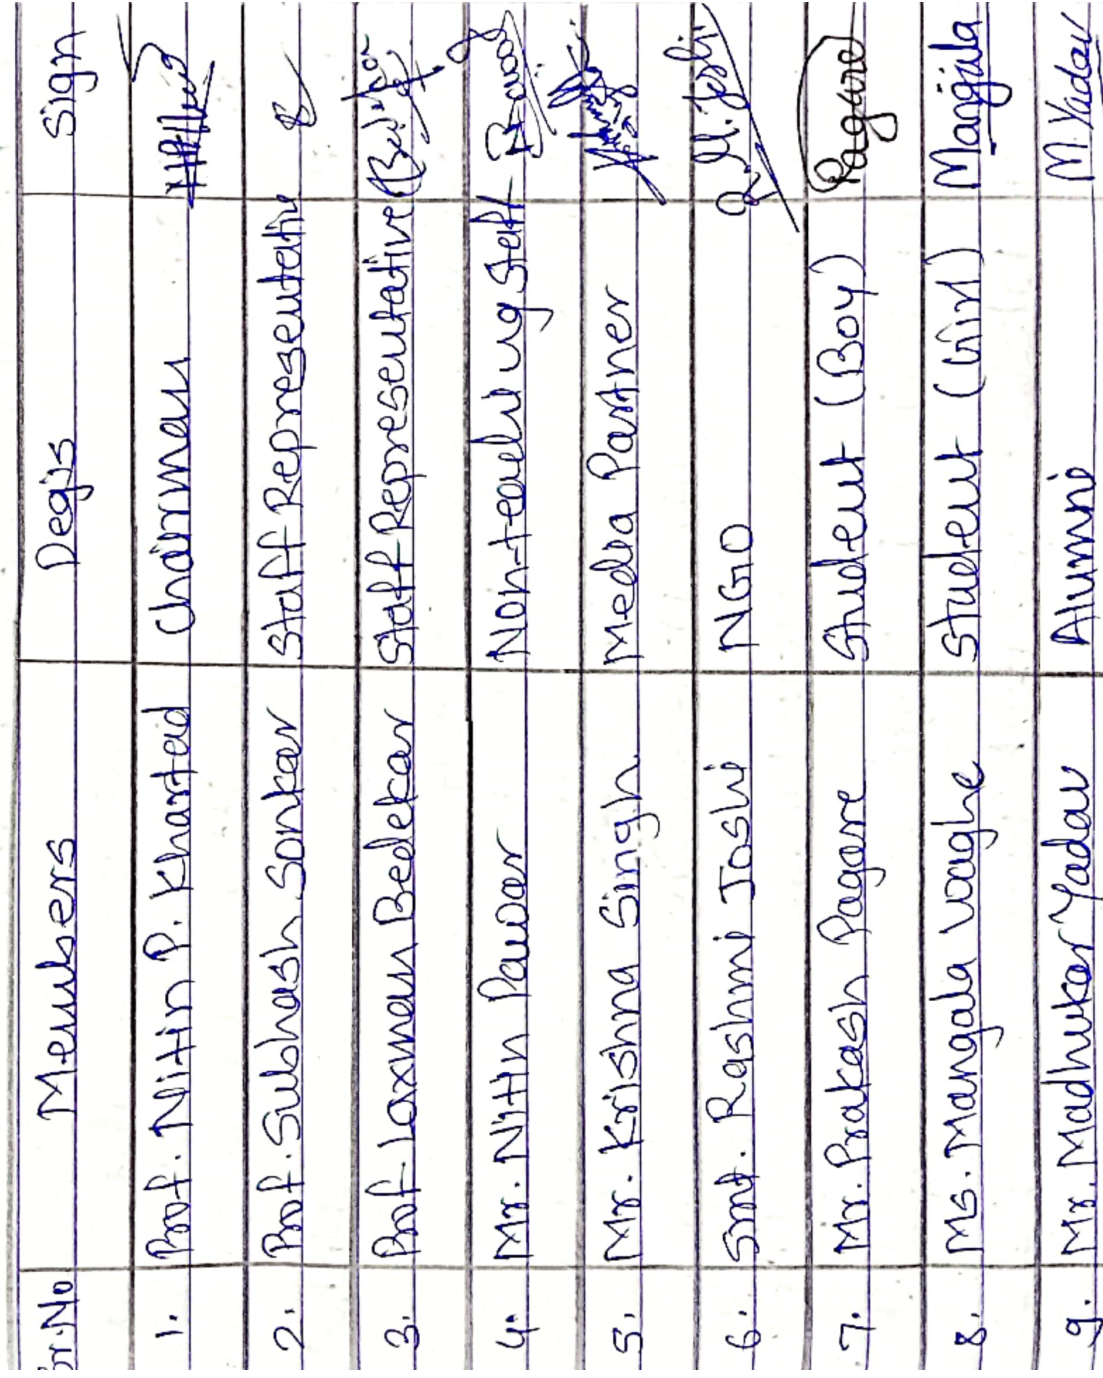 Sr.No Members Degis Sign
1. Prof. Nitin P. Khartad Chairman
2. Prof. Subhash Sonkar Staff Representative
3. Prof Laxman Bedekar Staff Representative
4. Mr. Nitin Pawar Non-teaching Staff
5. Mr. Krishna Singh Media Partner
6. Smt. Rashmi Joshi NGO R. M. Joshi
7. Mr. Prakash Pagare Student (Boy) Pagare
8. Ms. Mangala Waghe Student (Girl) Mangala
9. Mr. Madhukar Yadav Alumni M. Yadav